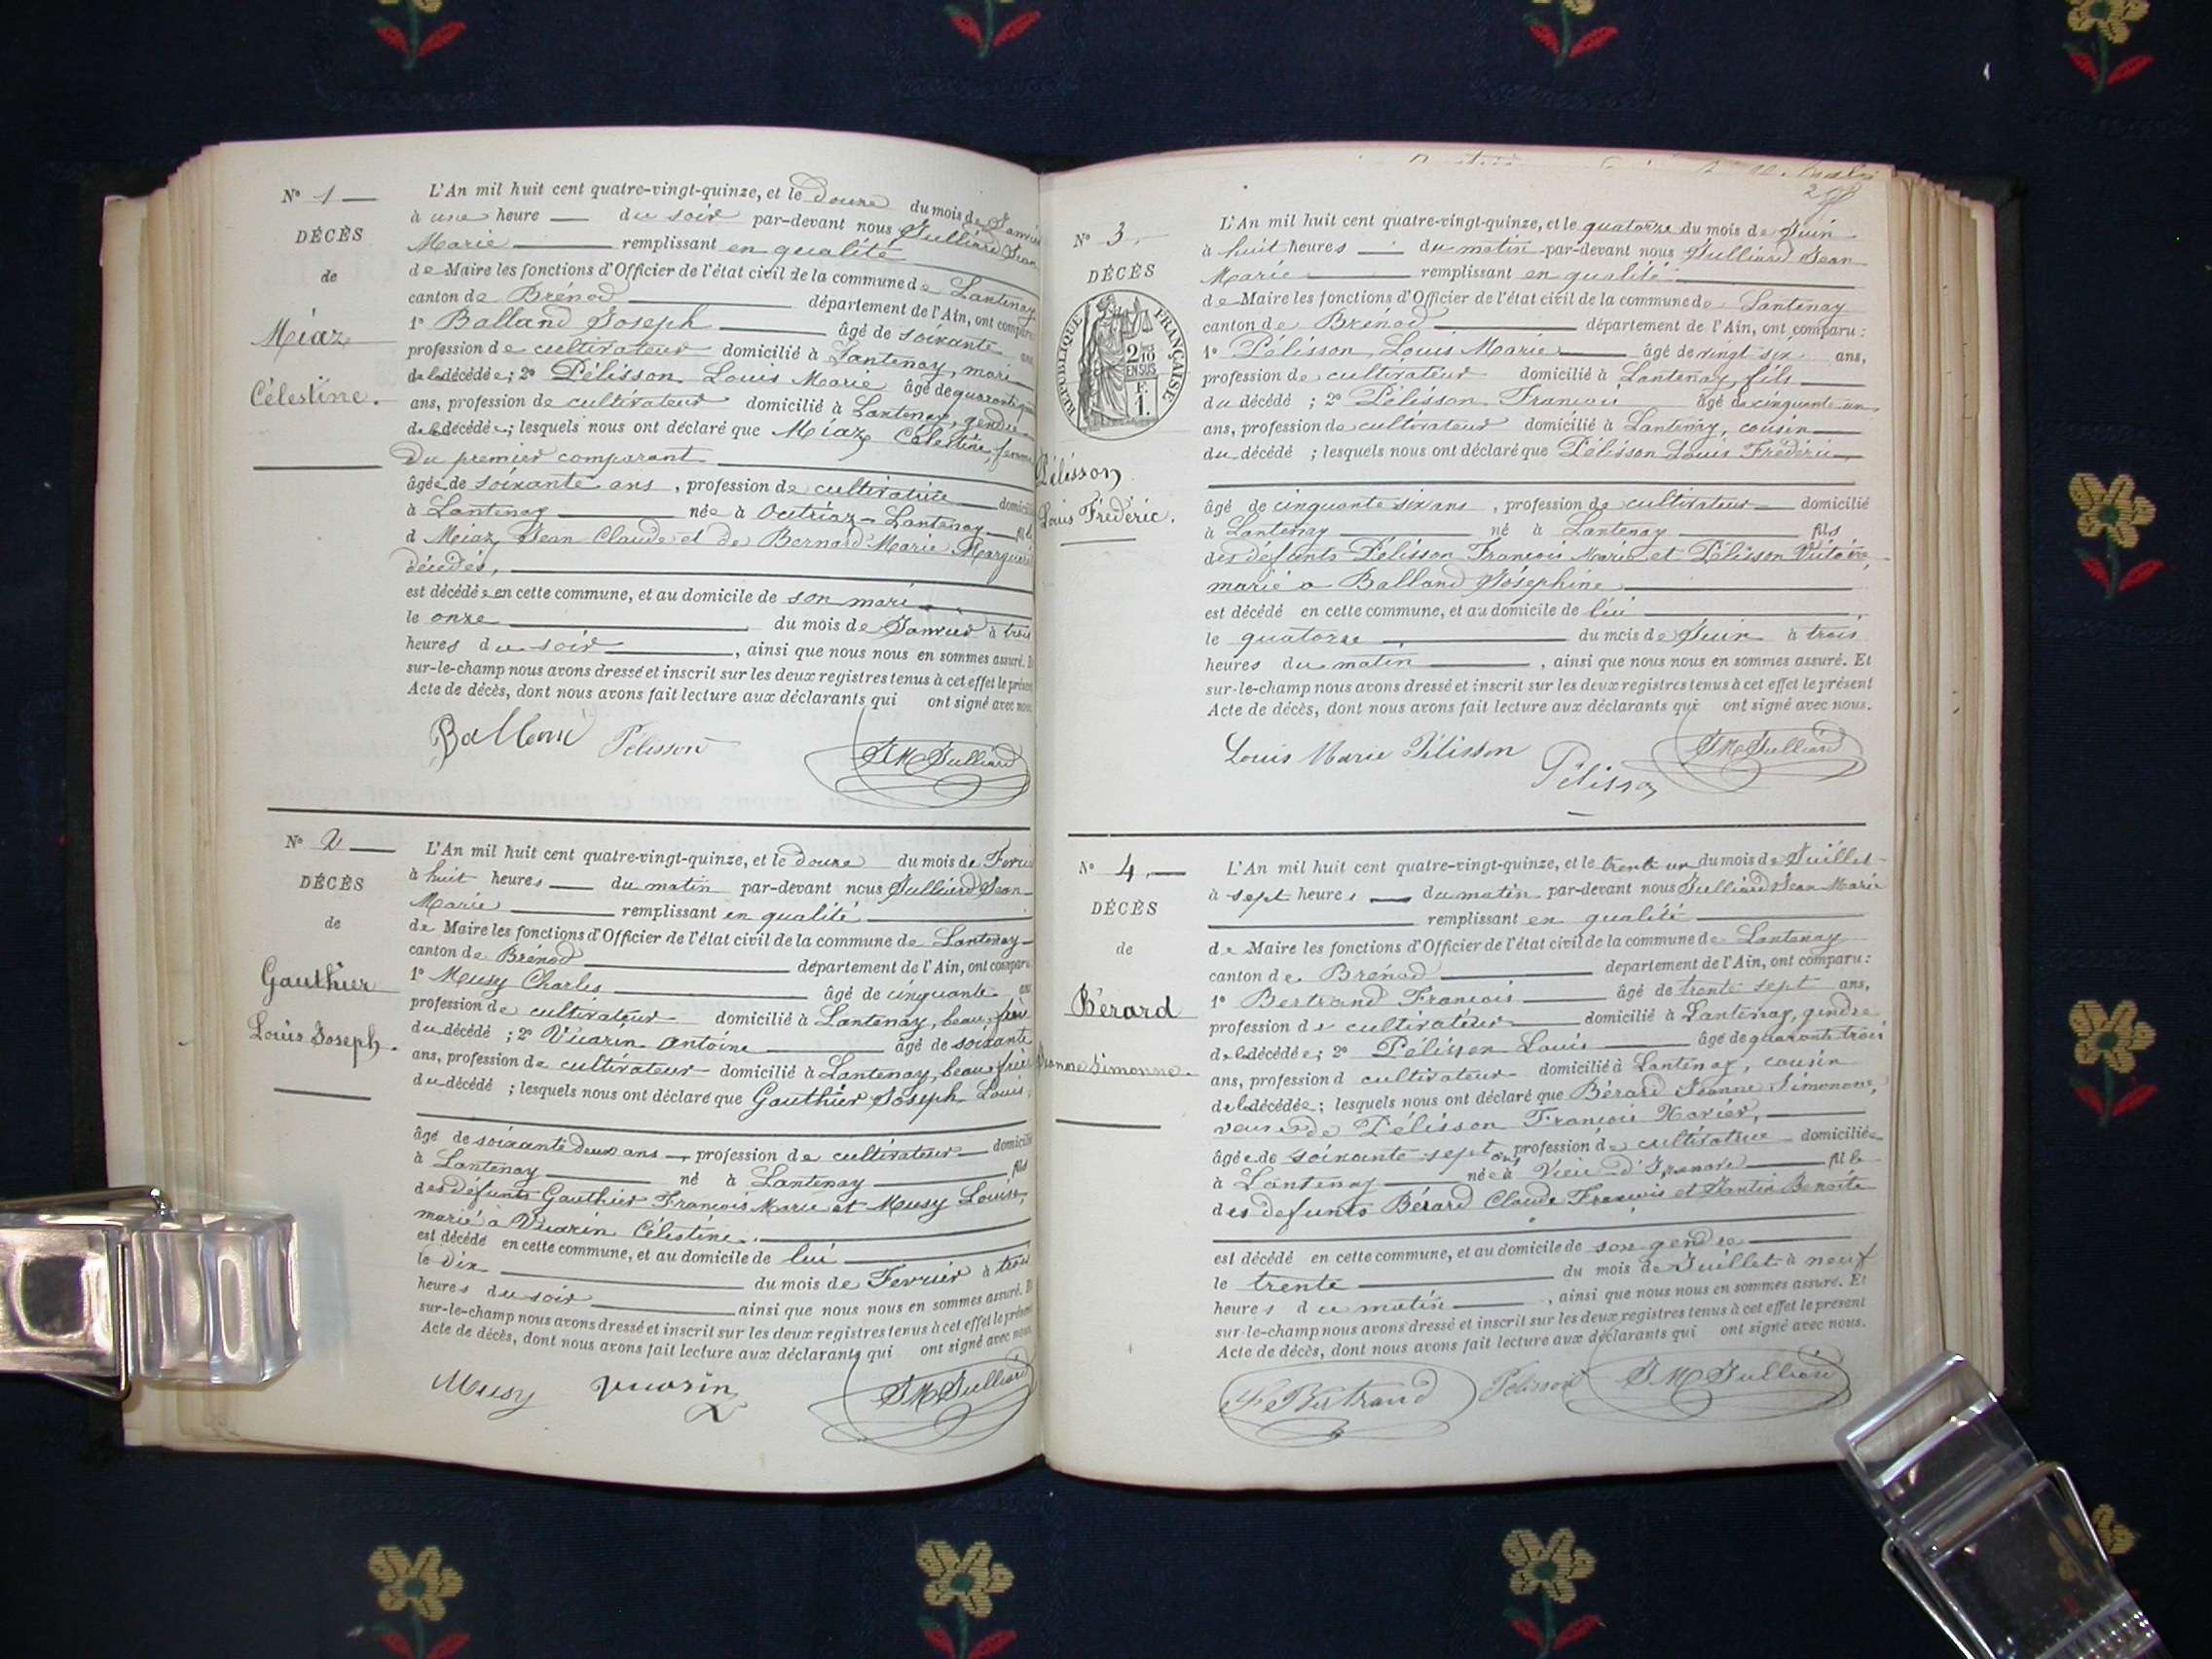 N° 1
DÉCÈS
de
Miaz
Célestine.
L'An mil huit cent quatre-vingt-quinze, et le douze du mois de Janvier
à une heure du soir par-devant nous Julliard Jean
Marie remplissant en qualité
de Maire les fonctions d'Officier de l'état civil de la commune de Lantenay
canton de Brénod département de l'Ain, ont comparu
1° Balland Joseph âgé de soixante ans
profession de cultivateur domicilié à Lantenay, mari
de la décédée; 2° Pélisson Louis Marie âgé de quarante
ans, profession de cultivateur domicilié à Lantenay, gendre
de la décédée; lesquels nous ont déclaré que Miaz Célestine, femme
du premier comparant
âgée de soixante ans, profession de cultivatrice domicili
à Lantenay née à Outriaz-Lantenay fille
d Miaz Jean Claude et de Bernard Marie Marguer
décédés,
est décédée en cette commune, et au domicile de son mari
le onze du mois de Janvier à trois
heures du soir, ainsi que nous nous en sommes assuré. E
sur-le-champ nous avons dressé et inscrit sur les deux registres tenus à cet effet le présent
Acte de décès, dont nous avons fait lecture aux déclarants qui ont signé avec nous.
Balland Pélisson JM Julliard
N° 2
DÉCÈS
de
Gauthier
Louis Joseph.
L'An mil huit cent quatre-vingt-quinze, et le douze du mois de Fevrier
à huit heures du matin par-devant nous Julliard Jean
Marie remplissant en qualité
de Maire les fonctions d'Officier de l'état civil de la commune de Lantenay
canton de Brénod département de l'Ain, ont comparu
1° Musy Charles âgé de cinquante ans
profession de cultivateur domicilié à Lantenay, beau frère
du décédé; 2° Vuarin Antoine âgé de soixante
ans, profession de cultivateur domicilié à Lantenay, beau frère
du décédé; lesquels nous ont déclaré que Gauthier Joseph Louis,
âgé de soixante deux ans, profession de cultivateur domicilié
à Lantenay né à Lantenay fils
des défunts Gauthier François Marie et Musy Louise,
marié à Vuarin Célestine.
est décédé en cette commune, et au domicile de lui
le dix du mois de Fevrier à trois
heures du soir ainsi que nous nous en sommes assuré. E
sur-le-champ nous avons dressé et inscrit sur les deux registres tenus à cet effet le présent
Acte de décès, dont nous avons fait lecture aux déclarants qui ont signé avec nous.
Musy Vuarin JM Julliard
N° 3.
DÉCÈS
RÉPUBLIQUE FRANÇAISE
2/10
EN SUS
F.
1.
Pélisson
Louis Frédéric.
L'An mil huit cent quatre-vingt-quinze, et le quatorze du mois de Juin
à huit heures du matin par-devant nous Julliard Jean
Marie remplissant en qualité
de Maire les fonctions d'Officier de l'état civil de la commune de Lantenay
canton de Brénod département de l'Ain, ont comparu:
1° Pélisson Louis Marie âgé de vingt six ans,
profession de cultivateur domicilié à Lantenay, fils
du décédé; 2° Pélisson François âgé de cinquante un
ans, profession de cultivateur domicilié à Lantenay, cousin
du décédé; lesquels nous ont déclaré que Pélisson Louis Frédéric
âgé de cinquante six ans, profession de cultivateur domicilié
à Lantenay né à Lantenay fils
des défunts Pélisson François Marie et Pélisson Victoire,
marié à Balland Joséphine
est décédé en cette commune, et au domicile de lui
le quatorze du mois de Juin à trois
heures du matin, ainsi que nous nous en sommes assuré. Et
sur-le-champ nous avons dressé et inscrit sur les deux registres tenus à cet effet le présent
Acte de décès, dont nous avons fait lecture aux déclarants qui ont signé avec nous.
Louis Marie Pélisson Pélisson JM Julliard
N° 4.
DÉCÈS
de
Bérard
Jeanne Simonne.
L'An mil huit cent quatre-vingt-quinze, et le trente un du mois de Juillet
à sept heures du matin par-devant nous Julliard Jean Marie
remplissant en qualité
de Maire les fonctions d'Officier de l'état civil de la commune de Lantenay
canton de Brénod département de l'Ain, ont comparu:
1° Bertrand François âgé de trente sept ans,
profession de cultivateur domicilié à Lantenay, gendre
de la décédée; 2° Pélisson Louis âgé de quarante trois
ans, profession d cultivateur domicilié à Lantenay, cousin
de la décédée; lesquels nous ont déclaré que Bérard Jeanne Simonne,
veuve de Pélisson François Xavier,
âgée de soixante sept ans, profession de cultivatrice domiciliée
à Lantenay née à Vieu-d'Izenave fille
des defunts Bérard Claude François et Jantin Benoite
est décédé en cette commune, et au domicile de son gendre
le trente du mois de Juillet à neuf
heures du matin, ainsi que nous nous en sommes assuré. Et
sur-le-champ nous avons dressé et inscrit sur les deux registres tenus à cet effet le présent
Acte de décès, dont nous avons fait lecture aux déclarants qui ont signé avec nous.
F. Bertrand Pélisson JM Julliard